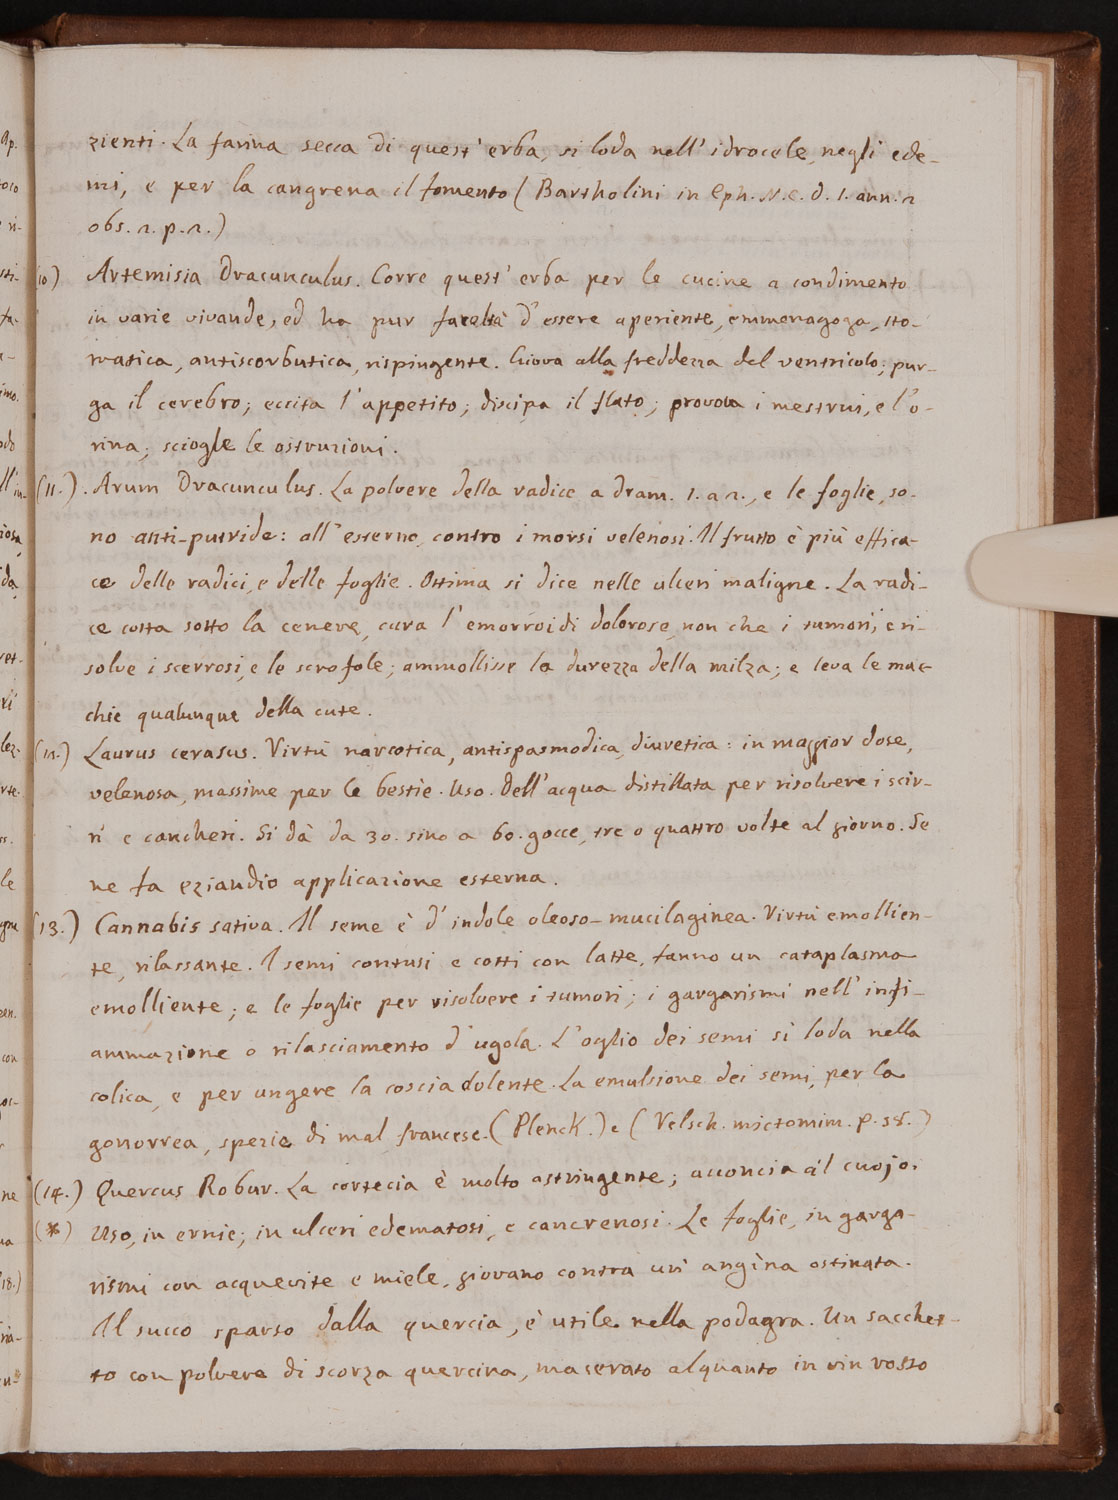 zienti. La farina secca di quest'erba, si loda nell'idrocele, negli ede-
mi, e per la cangrena il fomento (Bartholini in Eph. N. C. d. 1. ann. 2
obs. 2. p. 2.)
10) Artemisia Dracunculus. Corre quest'erba per le cucine a condimento
in varie vivande, ed ha pur facoltà d'essere aperiente, emmenagoga, sto-
matica, antiscorbutica, rispingente. Giova alla freddezza del ventricolo; pur-
ga il cerebro; eccita l'appetito; discipa il flato; provoca i mestrui, e l'o-
rina; scioglie le ostruzioni.
(11.). Arum Dracunculus. La polvere della radice a dram. 1. a 2., e le foglie, so-
no anti-putride: all'esterno, contro i morsi velenosi. Il frutto è più effica-
ce delle radici, e delle foglie. Ottima si dice nelle ulceri maligne. La radi-
ce cotta sotto la cenere, cura l'emorroidi dolorose, non che i tumori, e ri-
solve i scerrosi, e le scrofole; ammollisse la durezza della milza; e leva le mac-
chie qualunque della cute.
(12.) Laurus cerasus. Virtù narcotica, antispasmodica, diuretica: in maggior dose,
velenosa, massime per le bestie. Uso. Dell'acqua distillata per risolvere i scir-
ri e cancheri. Si dà da 30. sino a 60. gocce, tre o quattro volte al giorno. Se
ne fa eziandio applicazione esterna.
(13.) Cannabis sativa. Il seme è d'indole oleoso-mucilaginea. Virtù emollien-
te, rilassante. I semi contusi e cotti con latte, fanno un cataplasma
emolliente; e le foglie per risolvere i tumori; i gargarismi nell'infi-
ammazione o rilasciamento d'ugola. L'oglio dei semi si loda nella
colica, e per ungere la coscia dolente. La emulsione dei semi, per la
gonorrea, spezie di mal francese. (Plenck.) e (Velsch. mictomim. p. 38.)
(14.) Quercus Robur. La cortecia è molto astringente; acconcia al cuojo.
(*) Uso, in ernie; in ulceri edematosi, e cancrenosi. Le foglie, in garga-
rismi con acquevite e miele, giovano contra un'angina ostinata.
Il succo sparso dalla quercia, è utile nella podagra. Un sacchet-
to con polvere di scorza quercina, macerato alquanto in vin rosso